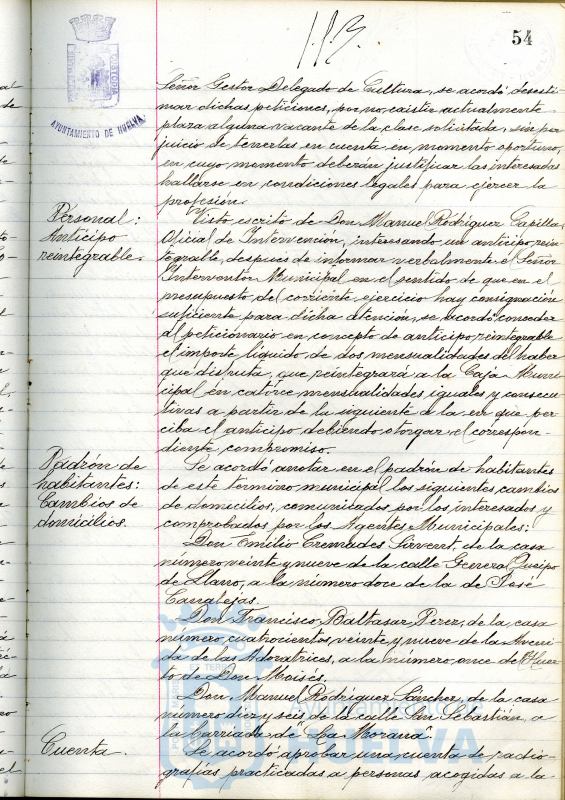 54
AYUNTAMIENTO DE HUELVA
Señor Gestor Delegado de Cultura, se acordó desesti-
mar dichas peticiones, por no existir actualmente
plaza alguna vacante de la clase solicitada, sin per
juicio de tenerlas en cuenta en momento oportuno,
en cuyo momento deberán justificar las interesadas
hallarse en condiciones legales para ejercer la
profesión.
Personal:
Anticipo
reintegrable.
Visto escrito de Don Manuel Rodríguez Capilla,
Oficial de Intervención, interesando un anticipo rein-
tegrable, después de informar verbalmente el Señor
Interventor Municipal en el sentido de que en el
presupuesto del corriente ejercicio hay consignación
suficiente para dicha atención, se acordó conceder
al peticionario en concepto de anticipo reintegrable
el importe líquido de dos mensualidades del haber
que disfruta, que reintegrará a la Caja Muni-
cipal en catorce mensualidades iguales y consecu-
tivas a partir de la siguiente de la en que per-
ciba el anticipo debiendo otorgar el correspon-
diente compromiso.
Padrón de
habitantes:
Cambios de
domicilios.
Se acordó anotar en el padrón de habitantes
de este término municipal los siguientes cambios
de domicilios, comunicados por los interesados y
comprobados por los Agentes Municipales:
Don Emilio Cremades Sirvent, de la casa
número veinte y nueve de la calle General Queipo
de Llano, a la número doce de la de José
Canalejas.
Don Francisco Baltasar Perez, de la casa
número cuatrocientos veinte y nueve de la Aveni-
da de las Adoratrices, a la número once de Huer-
to de Don Moisés.
Don Manuel Rodríguez Sánchez, de la casa
número diez y seis de la calle San Sebastián, a
la barriada de "La Morana".
Cuenta.
Se acordó aprobar una cuenta de radio-
grafías practicadas a personas acogidas a la
Ayuntamiento de
HUELVA